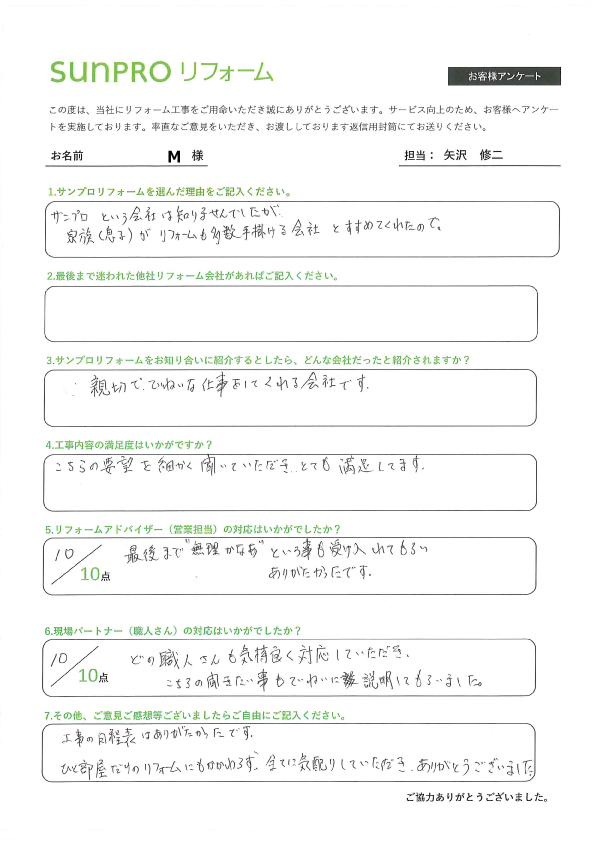 sunpro リフォーム
お客様アンケート
この度は、当社にリフォーム工事をご用命いただき誠にありがとうございます。サービス向上のため、お客様へアンケー
トを実施しております。率直なご意見をいただき、お渡ししております返信用封筒にてお送りください。
お名前 M 様 担当: 矢沢 修二
1.サンプロリフォームを選んだ理由をご記入ください。
サンプロ という会社は知りませんでしたが、
家族(息子)が リフォームも多数手掛ける会社 とすすめてくれたので。
2.最後まで迷われた他社リフォーム会社があればご記入ください。
3.サンプロリフォームをお知り合いに紹介するとしたら、どんな会社だったと紹介されますか?
親切で、ていねいな仕事をしてくれる会社です.
4.工事内容の満足度はいかがですか?
こちらの要望を細かく聞いていただき、とても満足してます.
5.リフォームアドバイザー(営業担当)の対応はいかがでしたか?
10/10点 最後まで"無理かなあ"という事も受け入れてもらい
ありがたかったです。
6.現場パートナー(職人さん)の対応はいかがでしたか?
10/10点 どの職人さんも気持良く対応していただき、
こちらの聞きたい事もていねいに説明してもらいました。
7.その他、ご意見ご感想等ございましたらご自由にご記入ください。
工事の日程表はありがたかったです。
ひと部屋だけのリフォームにもかかわらず、全てに気配りしていただき、ありがとうございました
ご協力ありがとうございました。